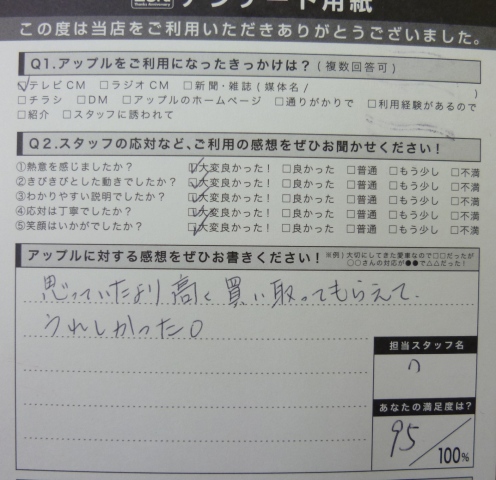 アンケート用紙
この度は当店をご利用いただきありがとうございました。
Q1.アップルをご利用になったきっかけは?(複数回答可)
☑テレビCM □ラジオCM □新聞・雑誌(媒体名/ )
□チラシ □DM □アップルのホームページ □通りがかりで □利用経験があるので
□紹介 □スタッフに誘われて
Q2.スタッフの応対など、ご利用の感想をぜひお聞かせください!
①熱意を感じましたか? ☑大変良かった! □良かった □普通 □もう少し □不満
②きびきびとした動きでしたか? ☑大変良かった! □良かった □普通 □もう少し □不満
③わかりやすい説明でしたか? ☑大変良かった! □良かった □普通 □もう少し □不満
④応対は丁寧でしたか? ☑大変良かった! □良かった □普通 □もう少し □不満
⑤笑顔はいかがでしたか? ☑大変良かった! □良かった □普通 □もう少し □不満
アップルに対する感想をぜひお書きください!
※例)大切にしてきた愛車なので□□だったが
○○さんの対応が●●で△△だった!
思っていたより高く買い取ってもらえて
うれしかった。
担当スタッフ名
あなたの満足度は?
95/100%